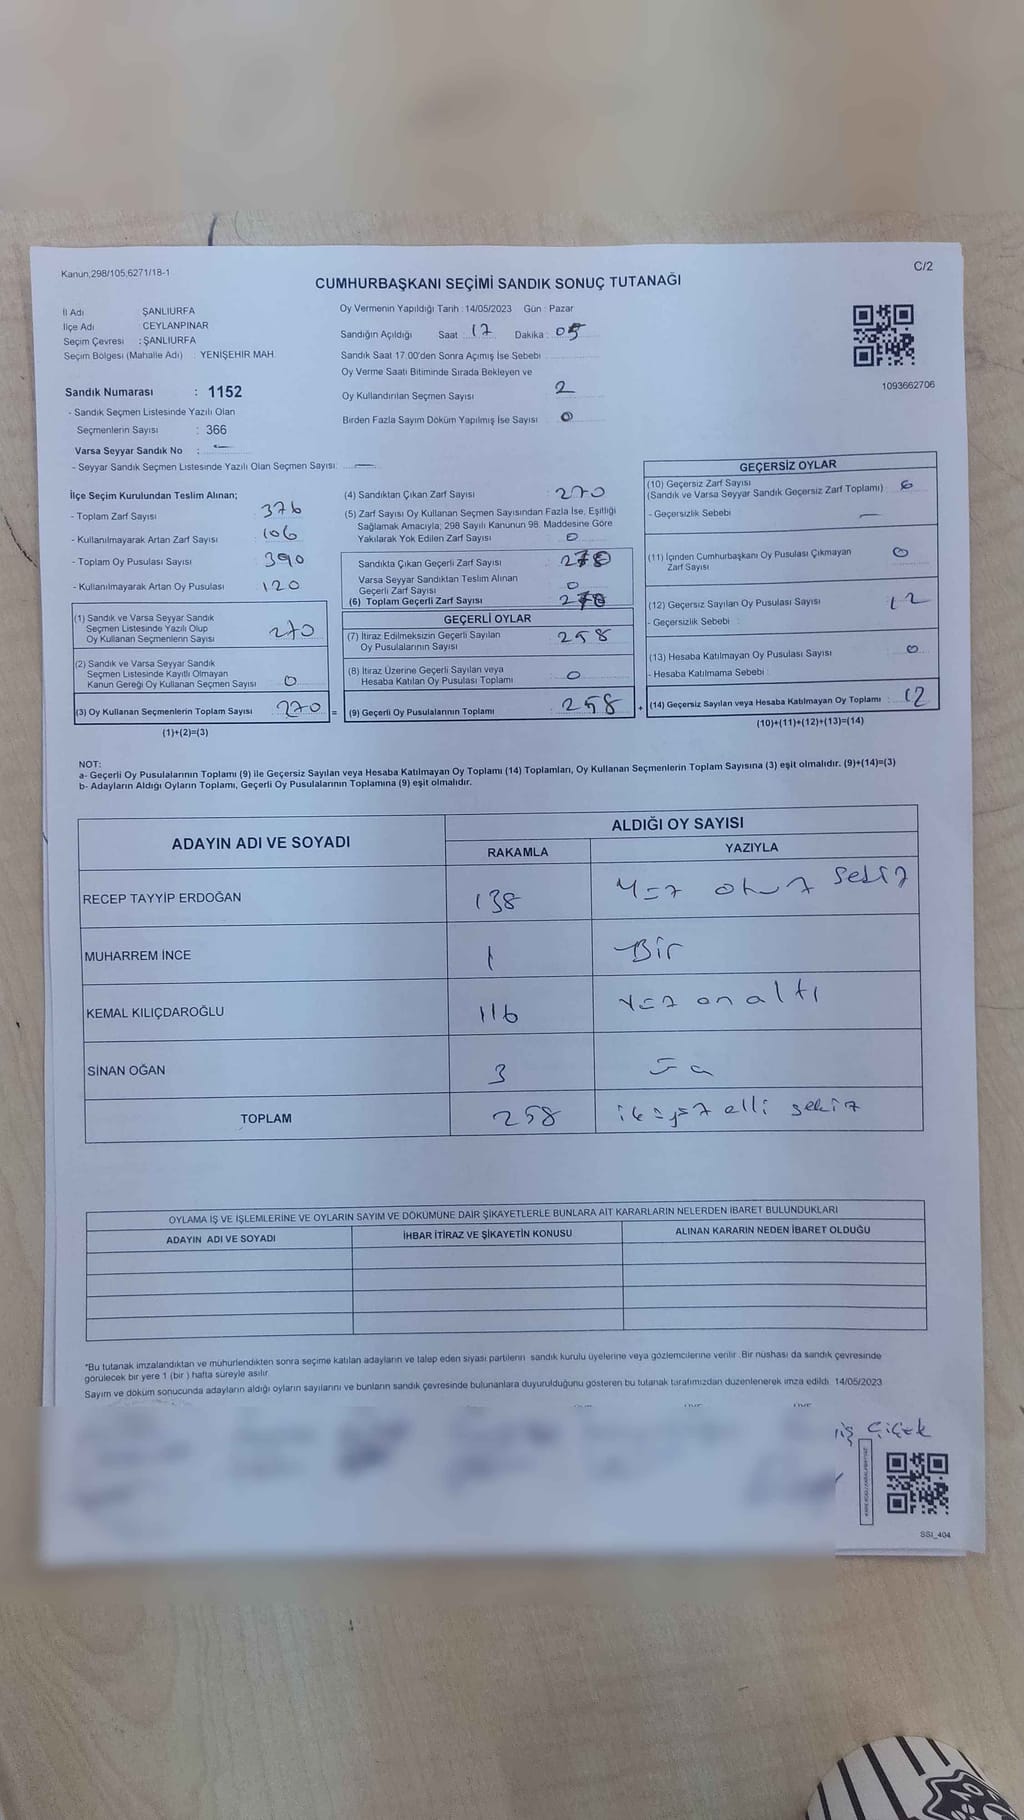 Kanun,298/105,6271/18-1
C/2
CUMHURBAŞKANI SEÇİMİ SANDIK SONUÇ TUTANAĞI
İl Adı ŞANLIURFA
İlçe Adı CEYLANPINAR
Seçim Çevresi : ŞANLIURFA
Seçim Bölgesi (Mahalle Adı) : YENİŞEHİR MAH.
Sandık Numarası : 1152
- Sandık Seçmen Listesinde Yazılı Olan
Seçmenlerin Sayısı : 366
Varsa Seyyar Sandık No : —
- Seyyar Sandık Seçmen Listesinde Yazılı Olan Seçmen Sayısı: —
Oy Vermenin Yapıldığı Tarih : 14/05/2023 Gün : Pazar
Sandığın Açıldığı Saat : 17 Dakika : 05
Sandık Saat 17.00'den Sonra Açımış İse Sebebi
Oy Verme Saati Bitiminde Sırada Bekleyen ve
Oy Kullandırılan Seçmen Sayısı 2
Birden Fazla Sayım Döküm Yapılmış İse Sayısı 0
1093662706
İlçe Seçim Kurulundan Teslim Alınan;
- Toplam Zarf Sayısı 376
- Kullanılmayarak Artan Zarf Sayısı 106
- Toplam Oy Pusulası Sayısı 390
- Kullanılmayarak Artan Oy Pusulası 120
(1) Sandık ve Varsa Seyyar Sandık
Seçmen Listesinde Yazılı Olup
Oy Kullanan Seçmenlerin Sayısı 270
(2) Sandık ve Varsa Seyyar Sandık
Seçmen Listesinde Kayıtlı Olmayan
Kanun Gereği Oy Kullanan Seçmen Sayısı 0
(3) Oy Kullanan Seçmenlerin Toplam Sayısı 270 =
(1)+(2)=(3)
(4) Sandıktan Çıkan Zarf Sayısı : 270
(5) Zarf Sayısı Oy Kullanan Seçmen Sayısından Fazla İse, Eşitliği
Sağlamak Amacıyla; 298 Sayılı Kanunun 98. Maddesine Göre
Yakılarak Yok Edilen Zarf Sayısı : 0
Sandıkta Çıkan Geçerli Zarf Sayısı
Varsa Seyyar Sandıktan Teslim Alınan
Geçerli Zarf Sayısı 0
(6) Toplam Geçerli Zarf Sayısı
GEÇERLİ OYLAR
(7) İtiraz Edilmeksizin Geçerli Sayılan
Oy Pusulalarının Sayısı : 258
(8) İtiraz Üzerine Geçerli Sayılan veya
Hesaba Katılan Oy Pusulası Toplamı : 0
(9) Geçerli Oy Pusulalarının Toplamı : 258 +
GEÇERSİZ OYLAR
(10) Geçersiz Zarf Sayısı
(Sandık ve Varsa Seyyar Sandık Geçersiz Zarf Toplamı)
- Geçersizlik Sebebi —
(11) İçinden Cumhurbaşkanı Oy Pusulası Çıkmayan
Zarf Sayısı 0
(12) Geçersiz Sayılan Oy Pusulası Sayısı 12
- Geçersizlik Sebebi :
(13) Hesaba Katılmayan Oy Pusulası Sayısı 0
- Hesaba Katılmama Sebebi
(14) Geçersiz Sayılan veya Hesaba Katılmayan Oy Toplamı : 12
(10)+(11)+(12)+(13)=(14)
NOT:
a- Geçerli Oy Pusulalarının Toplamı (9) ile Geçersiz Sayılan veya Hesaba Katılmayan Oy Toplamı (14) Toplamları, Oy Kullanan Seçmenlerin Toplam Sayısına (3) eşit olmalıdır. (9)+(14)=(3)
b- Adayların Aldığı Oyların Toplamı, Geçerli Oy Pusulalarının Toplamına (9) eşit olmalıdır.
ADAYIN ADI VE SOYADI ALDIĞI OY SAYISI
RAKAMLA YAZIYLA
RECEP TAYYİP ERDOĞAN 138 Yüz otuz sekiz
MUHARREM İNCE 1 Bir
KEMAL KILIÇDAROĞLU 116 Yüz on altı
SİNAN OĞAN 3
TOPLAM 258 iki yüz elli sekiz
OYLAMA İŞ VE İŞLEMLERİNE VE OYLARIN SAYIM VE DÖKÜMÜNE DAİR ŞİKAYETLERLE BUNLARA AİT KARARLARIN NELERDEN İBARET BULUNDUKLARI
ADAYIN ADI VE SOYADI İHBAR İTİRAZ VE ŞİKAYETİN KONUSU ALINAN KARARIN NEDEN İBARET OLDUĞU
*Bu tutanak imzalandıktan ve mühürlendikten sonra seçime katılan adayların ve talep eden siyasi partilerin sandık kurulu üyelerine veya gözlemcilerine verilir. Bir nüshası da sandık çevresinde
görülecek bir yere 1 (bir) hafta süreyle asılır.
Sayım ve döküm sonucunda adayların aldığı oyların sayılarını ve bunların sandık çevresinde bulunanlara duyurulduğunu gösteren bu tutanak tarafımızdan düzenlenerek imza edildi. 14/05/2023
Çiçek
SSI_404